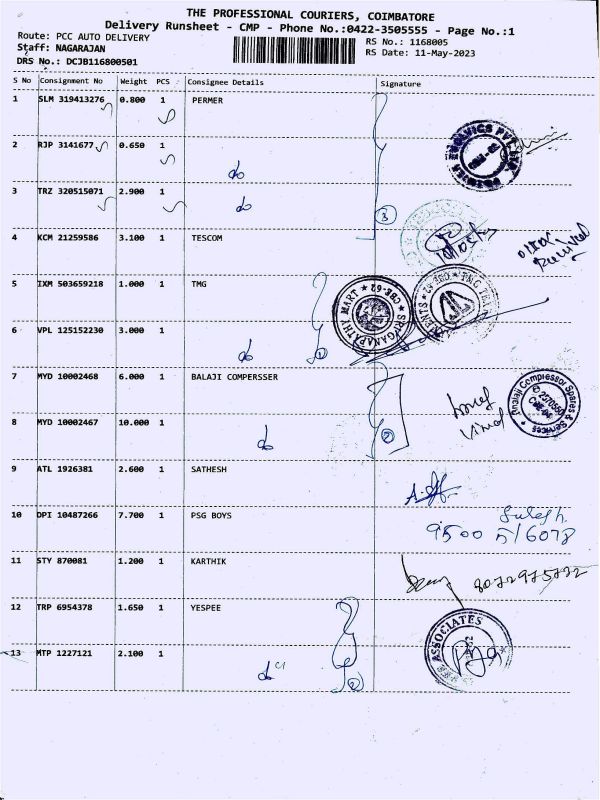 THE PROFESSIONAL COURIERS, COIMBATORE
Delivery Runsheet - CMP - Phone No.:0422-3505555 - Page No.:1
Route: PCC AUTO DELIVERY
RS No.: 1168005
Staff: NAGARAJAN
RS Date: 11-May-2023
DRS No.: DCJB116800501
S No Consignment No Weight PCS Consignee Details Signature
1 SLM 319413276 0.800 1 PERMER
2 RJP 3141677 0.650 1 do
3 TRZ 320515071 2.900 1 do 3
4 KCM 21259586 3.100 1 TESCOM
5 IXM 503659218 1.000 1 TMG
SRI GANAPATHY MART ★ CBE-62 ★
6 VPL 125152230 3.000 1 do
7 MYD 10002468 6.000 1 BALAJI COMPERSSER
Balaji Compressor Spares & Services
8 MYD 10002467 10.000 1 do 2
9 ATL 1926381 2.600 1 SATHESH
10 DPI 10487266 7.700 1 PSG BOYS
9500 516078
11 STY 870081 1.200 1 KARTHIK
8072975722
12 TRP 6954378 1.650 1 YESPEE
ASSOCIATES
13 MTP 1227121 2.100 1 do 2